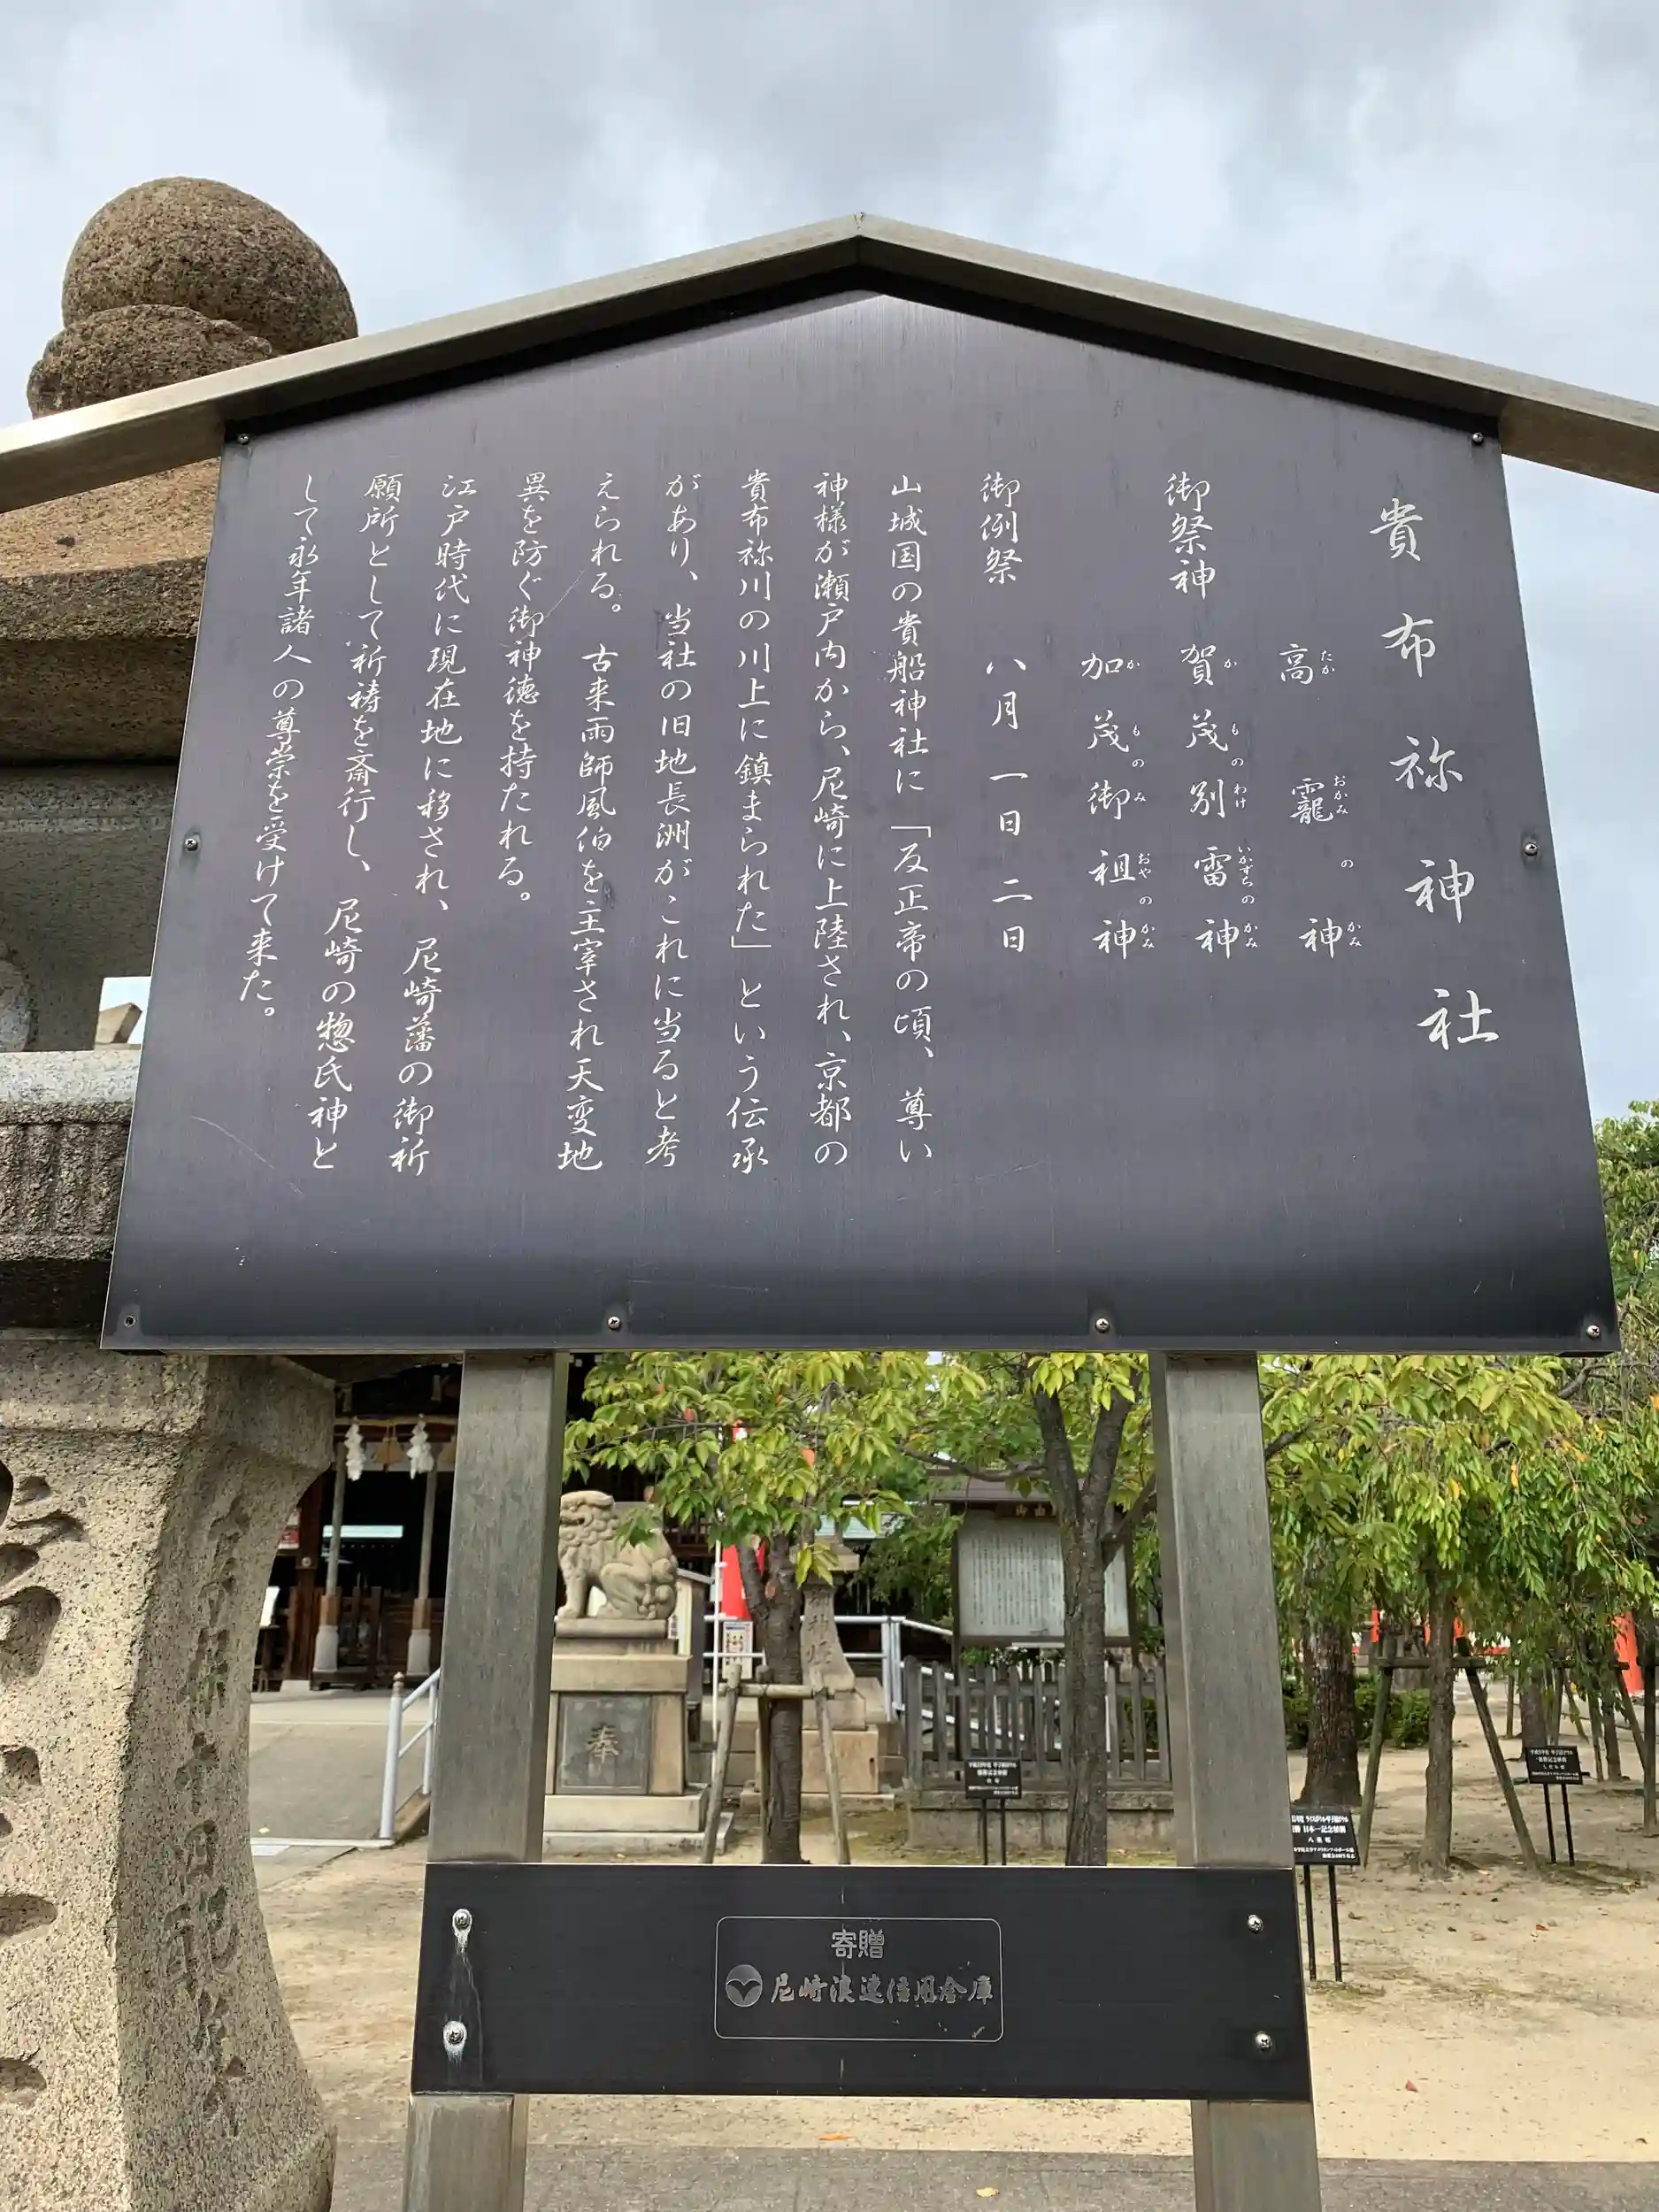 貴布祢神社
御祭神
高龗の神
たか おかみ かみ
賀茂別雷神
かものわけいかずちのかみ
加茂御祖神
かものみおやのかみ
御例祭 八月一日二日
山城国の貴船神社に「反正帝の頃、尊い
神様が瀬戸内から、尼崎に上陸され、京都の
貴布祢川の川上に鎮まられた」という伝承
があり、当社の旧地長洲がこれに当ると考
えられる。古来雨師風伯を主宰され天変地
異を防ぐ御神徳を持たれる。
江戸時代に現在地に移され、尼崎藩の御祈
願所として祈祷を斎行し、尼崎の惣氏神と
して永年諸人の尊崇を受けて来た。
奉
寄贈
尼崎浪速信用金庫